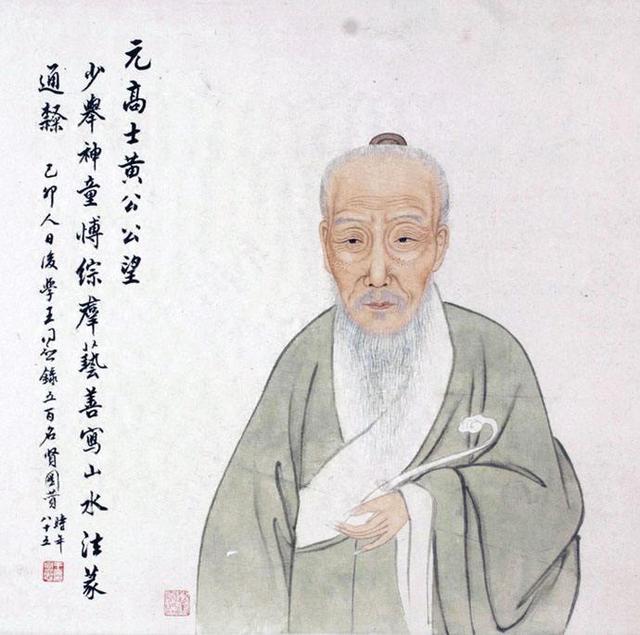 元高士黄公公望
少舉神童博綜群藝善寫山水法篆
通隸
己卯人日後學王同愈錄五百名賢圖贊
時年
八十五